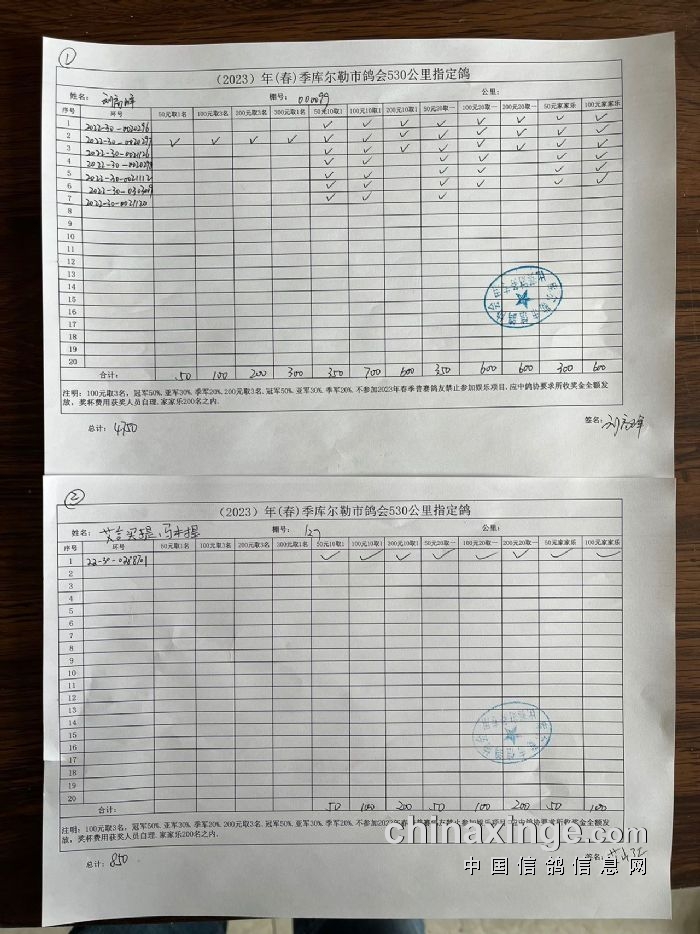 ①
(2023)年(春)季库尔勒市鸽会530公里指定鸽
姓名： 刘高峰 棚号： 000099 公里：
序号 环号 50元取1名 100元取3名 200元取3名 300元取1名 50元10取1 100元10取1 200元10取1 50元20取一 100元20取一 200元20取一 50元家家乐 100元家家乐
1 2022-30-0020296 ✓ ✓ ✓ ✓ ✓ ✓ ✓ ✓
2 2022-30-0020297 ✓ ✓ ✓ ✓ ✓ ✓ ✓ ✓ ✓ ✓ ✓ ✓
3 2022-30-0021126 ✓ ✓ ✓ ✓ ✓ ✓ ✓ ✓
4 2022-30-002029 ✓ ✓ ✓ ✓ ✓ ✓
5 2022-30-0021112 ✓ ✓ ✓ ✓ ✓ ✓
6 2022-30-030309 ✓ ✓ ✓ ✓ ✓ ✓
7 2022-30-0021120 ✓ ✓ ✓
8
9
10
11
12
13
14
15
16
17
18
19
20
合计： 50 100 200 300 350 700 600 350 600 600 300 600
注明：100元取3名，冠军50%,亚军30%,季军20%,200元取3名,冠军50%,亚军30%,季军20%,不参加2023年春季普赛鸽友禁止参加娱乐项目,应中鸽协要求所收奖金全额发
放，奖杯费用获奖人员自理,家家乐200名之内.
总计： 4750 签名： 刘高峰
②
(2023)年(春)季库尔勒市鸽会530公里指定鸽
姓名： 棚号： 127 公里：
序号 环号 50元取1名 100元取3名 200元取3名 300元取1名 50元10取1 100元10取1 200元10取1 50元20取一 100元20取一 200元20取一 50元家家乐 100元家家乐
1 22-30-0288701 ✓ ✓ ✓ ✓ ✓ ✓ ✓ ✓
2
3
4
5
6
7
8
9
10
11
12
13
14
15
16
17
18
19
20
合计： 50 100 200 50 100 200 50 100
注明：100元取3名，冠军50%,亚军30%,季军20%,200元取3名,冠军50%,亚军30%,季军20%,不参加2023年春季普赛鸽友禁止参加娱乐项目,应中鸽协要求所收奖金全额发
放，奖杯费用获奖人员自理,家家乐200名之内.
总计： 850 签名：
chinaxinge.com
中国信鸽信息网